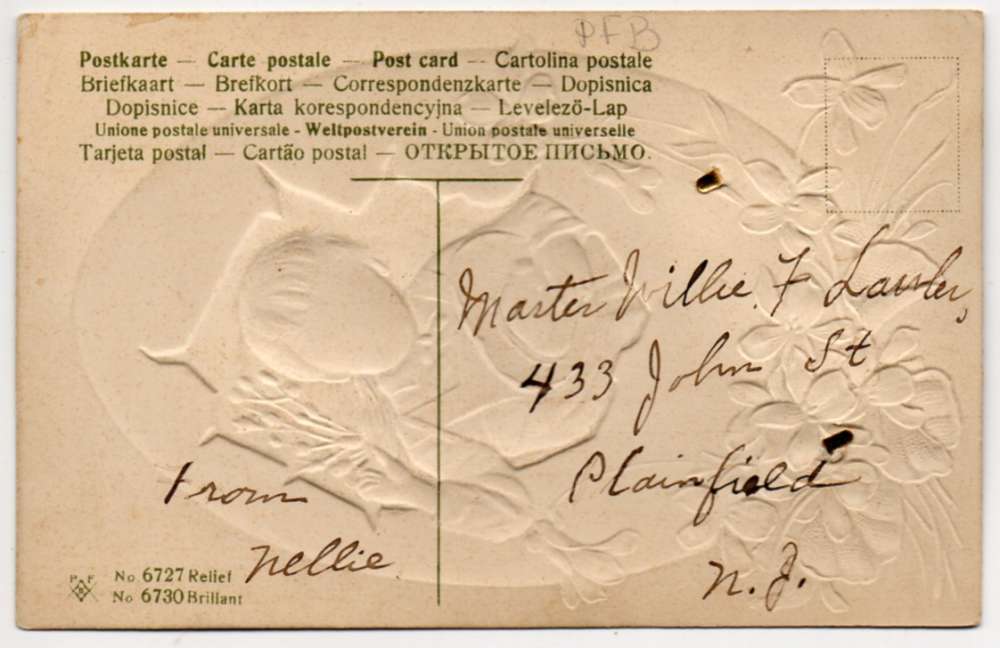 PFB
Postkarte — Carte postale — Post card -- Cartolina postale
Briefkaart — Brefkort — Correspondenzkarte — Dopisnica
Dopisnice — Karta korespondencyjna — Levelezö-Lap
Unione postale universale - Weltpostverein - Union postale universelle
Tarjeta postal — Cartão postal — ОТКРЫТОЕ ПИСЬМО.
Master Willie F
433 John St
Plainfield
N. J.
From
Nellie
P F B
No 6727 Relief
No 6730 Brillant